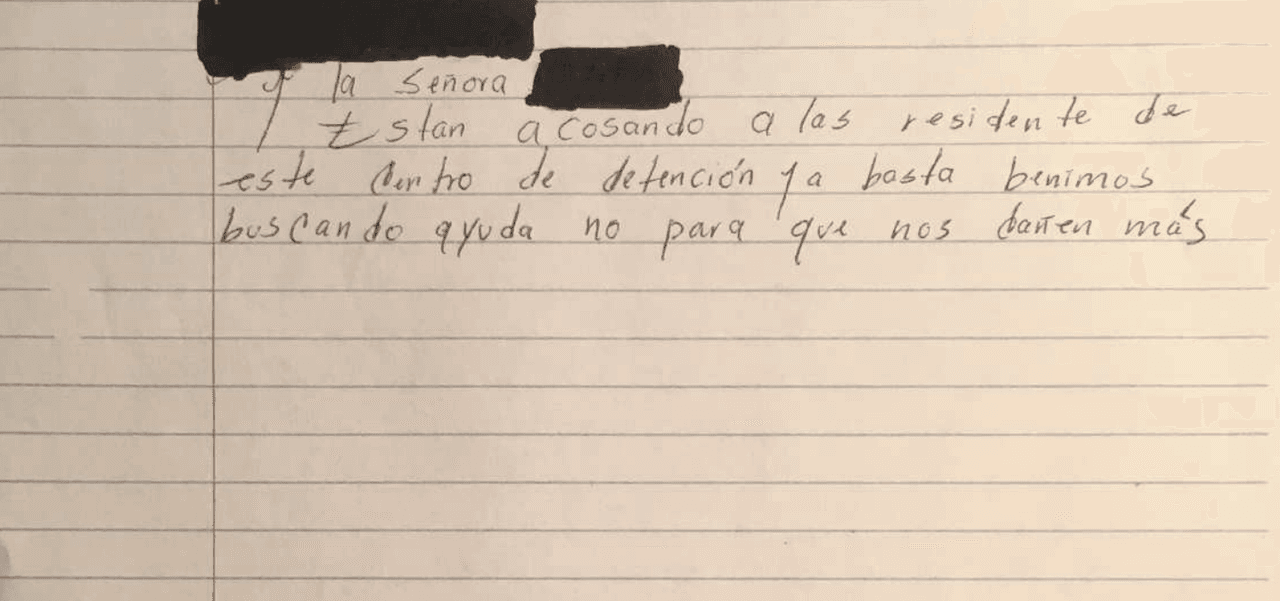 y la señora
Estan acosando a las residente de
este Centro de detención ya basta benimos
buscando ayuda no para que nos dañen más